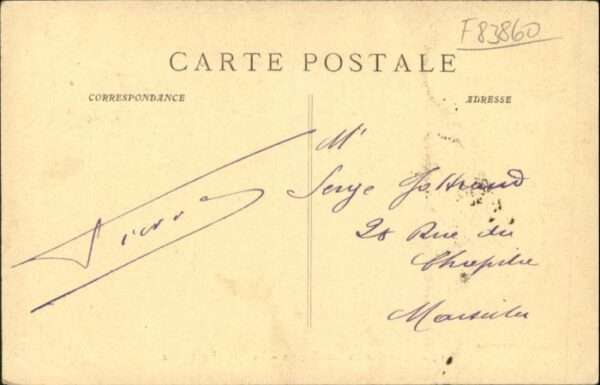 F83860
CARTE POSTALE
CORRESPONDANCE
ADRESSE
Mr
Serge
28 Rue du
Chapitre
Marseille
Pierre